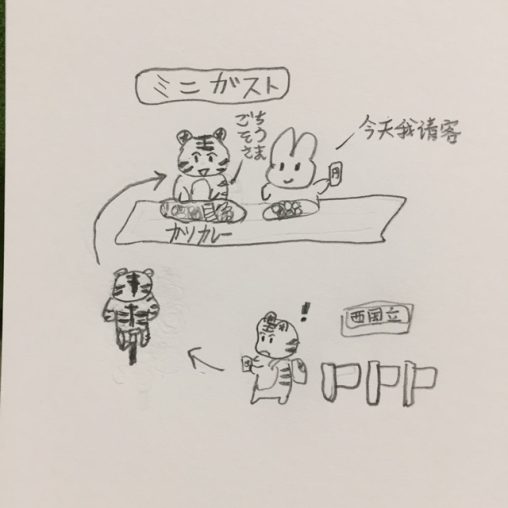 ミニガスト
ごちそうさま
今天我请客
カツカレー
!
西国立